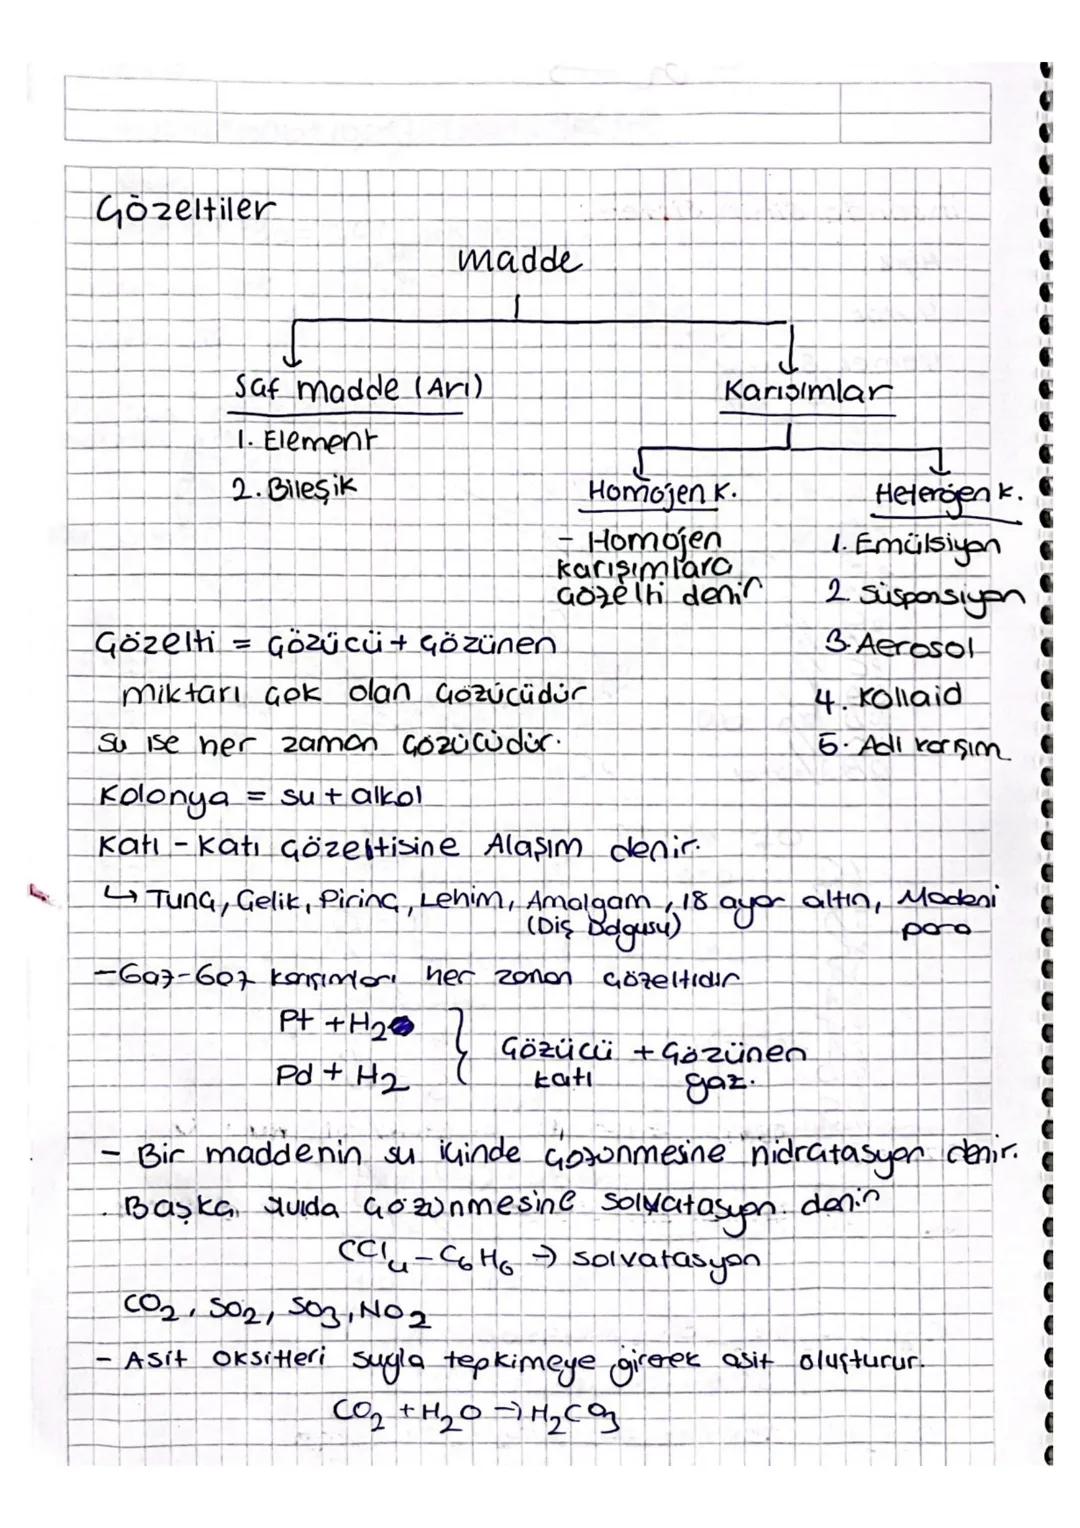 Çözeltiler
madde
Saf madde (Arı)
Karışımlar
1. Element
2. Bileşik
Homojen k.
Heterojen k.
- Homojen
karışımlara
çözelti denir
1. Emülsiyon
2. Süspansiyon
3. Aerosol
4. Kolloid
5. Adi karışım
Çözelti = Çözücü + Çözünen
miktarı çok olan çözücüdür
su ise her zaman çözücüdür.
Kolonya = su + alkol
Katı - Katı çözeltisine Alaşım denir.
↳ Tunç, Çelik, Pirinç, Lehim, Amalgam, 18 ayar altın, Madeni
(Diş Dolgusu)
para
- Gaz-Gaz karışımları her zaman çözeltidir
Pt + H2
Pd + H2
Çözücü + Çözünen
katı gaz.
- Bir maddenin su içinde çözünmesine hidratasyon denir.
. Başka sıvıda çözünmesine solvatasyon denir
CCl4 - C6H6 → solvatasyon
CO2, SO2, SO3, NO2
- Asit oksitleri suyla tepkimeye girerek asit oluşturur.
CO2 + H2O → H2CO3